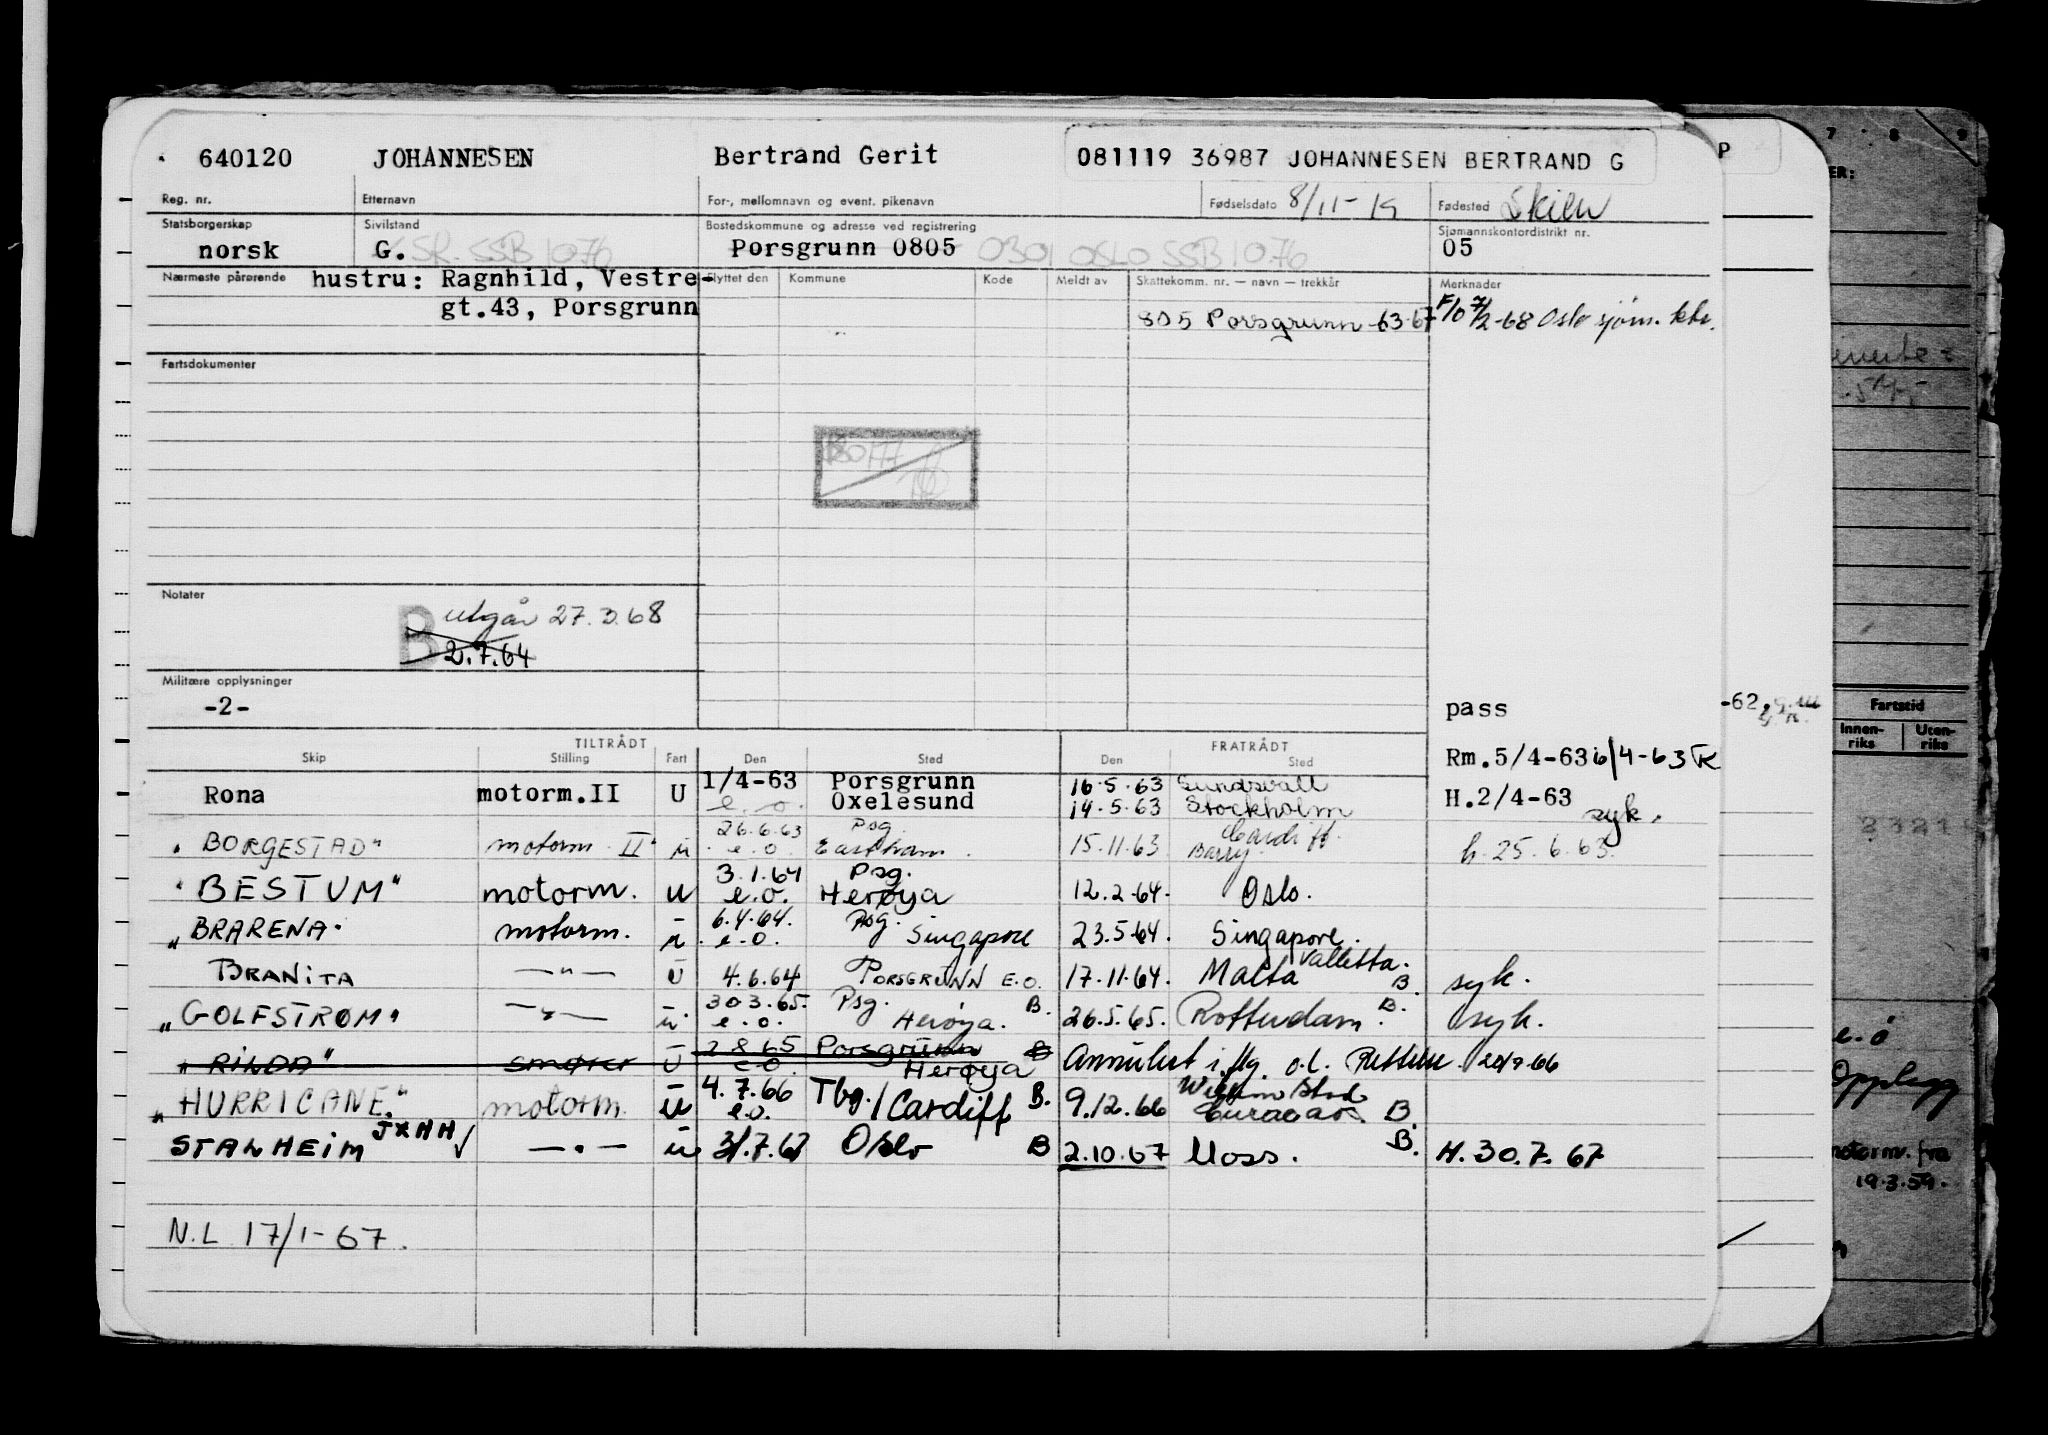 640120 JOHANNESEN Bertrand Gerit 081119 36987 JOHANNESEN BERTRAND G
Reg. nr. Etternavn For-, mellomnavn og event. pikenavn Fødselsdato 8/11-19 Fødested Skien
Statsborgerskap Sivilstand Bostedskommune og adresse ved registrering Sjømannskontordistrikt nr.
norsk G. SR. SSB 1076 Porsgrunn 0805 0301 OSLO SSB 10.76 05
Nærmeste pårørende hustru: Ragnhild, Vestre- Flyttet den Kommune Kode Meldt av Skattekomm. nr. — navn — trekkår Merknader
gt.43, Porsgrunn 805 Porsgrunn -63-67 F/o 7/2-68 Oslo sjøm. ktr.
Fartsdokumenter
Notater
B utgår 27.3.68
2.7.64
Militære opplysninger
-2- pass -62,
TILTRÅDT FRATRÅDT
Skip Stilling Fart Den Sted Den Sted Rm.5/4-63 6/4-63 K
Rona motorm.II U 1/4-63 Porsgrunn 16.5.63 Sundsvall
e.o. Oxelesund 14.5.63 Stockholm H.2/4-63 syk.
26.6.63 Psg. Cardiff
"BORGESTAD" motorm. II u e.o. Eastham. 15.11.63 Barry h.25.6.63.
3.1.64 Psg.
"BESTUM" motorm. u e.o. Herøya 12.2-64. Oslo.
6.4.64. Psg.
"BRARENA" motorm. u e.o. Singapore 23.5.64. Singapore.
BRANITA —"— U 4.6.64 PORSGRUNN E.O. 17.11.64. Malta Valletta. B. syk.
30.3.65. Psg. B.
"GOLFSTRØM" —"— u e.o. Herøya. 26.5.65. Rotterdam. B. syk.
"RINDA" smører U 2865 Porsgrunn B
e.o. Herøya Annulert i flg. o.l. Rettelse. 20/9-66
4.7.66 Willemstad
"HURRICANE" motorm. u e.o. Tbg./Cardiff B. 9.12.66 Curacao. B.
STALHEIM JXHH √ —"— u 31.7.67 Oslo B 2.10.67 Moss. B. H.30.7.67
N.L 17/1-67.
7 8 9
P
ER:
Fartstid
Innen-riks Uten-riks
e.ø
Opplagg
motorm. fra
19.3.59.